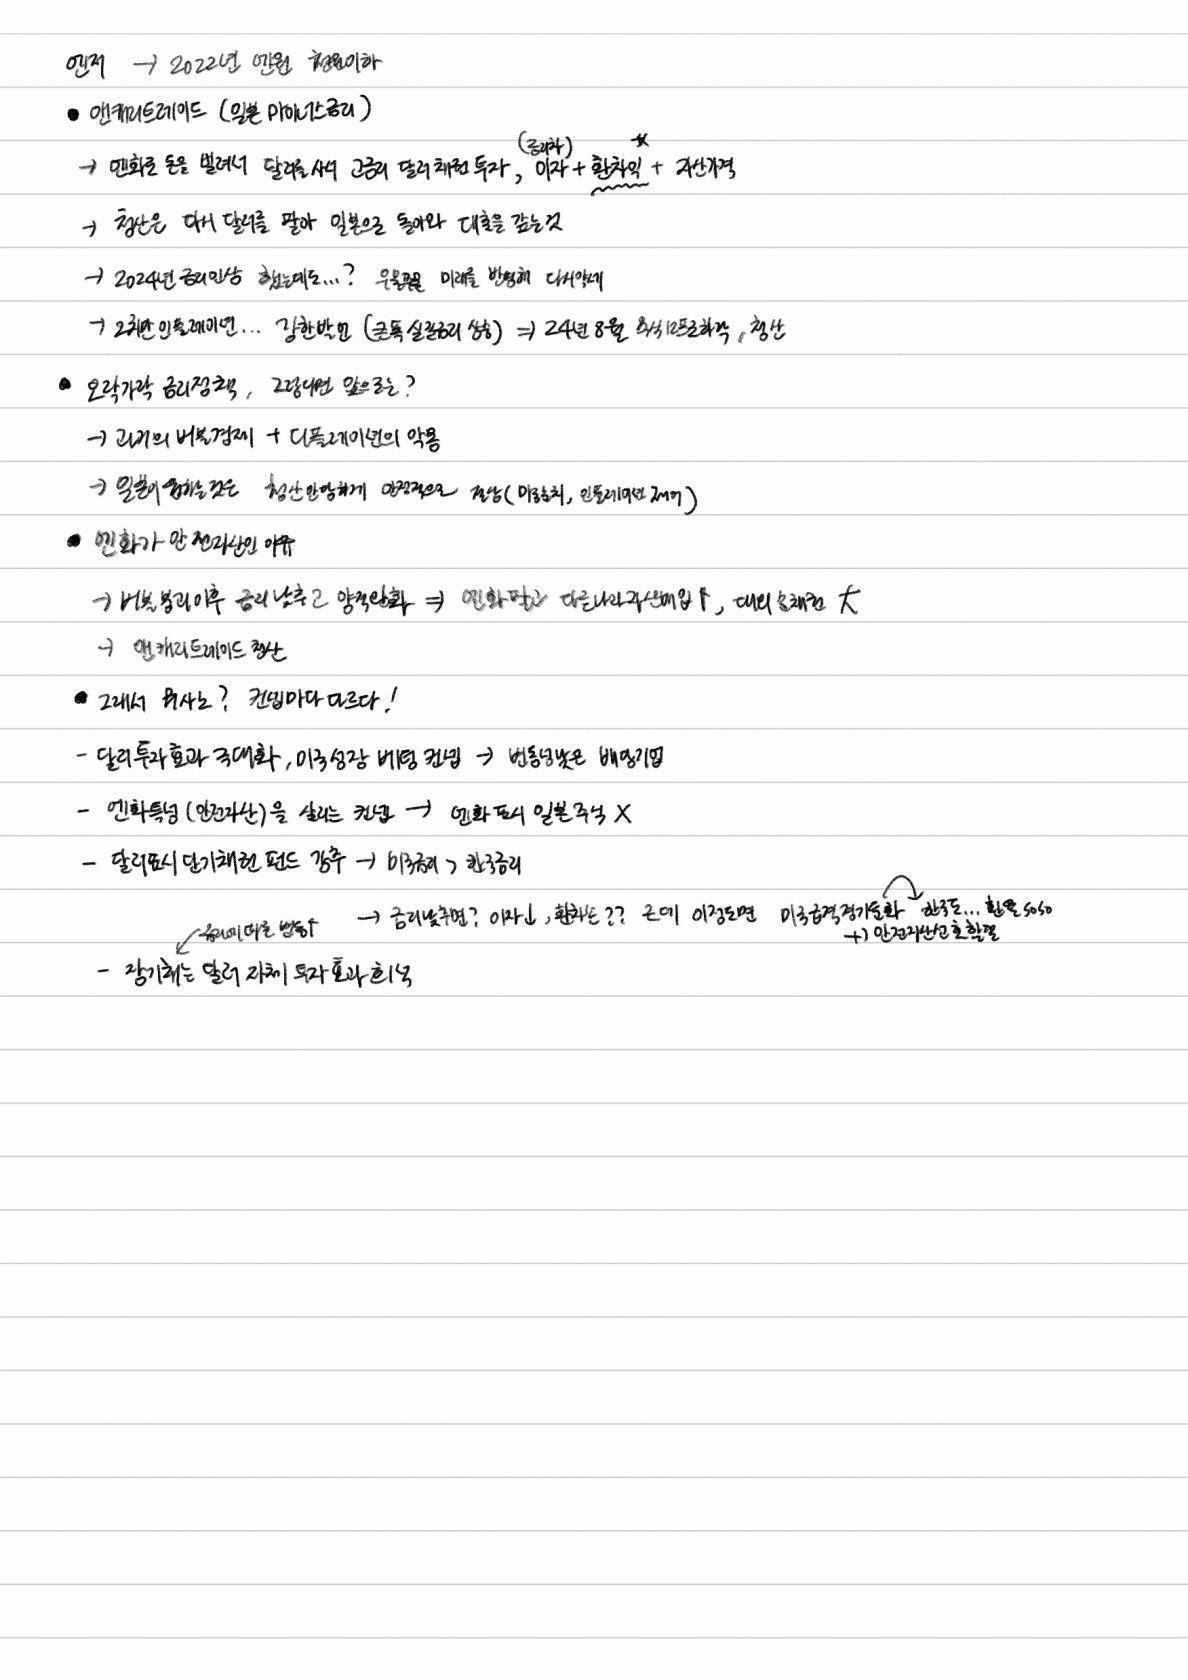 엔저 → 2022년 엔원 천원이하
● 엔캐리트레이드 (일본 마이너스금리)
(금리차) ★
→ 엔화로 돈을 빌려서 달러를 사서 고금리 달러 채권 투자, 이자 + 환차익 + 자산가격
→ 청산은 다시 달러를 팔아 일본으로 돌아와 대출을 갚는것
→ 2024년 금리인상 했는데도...? 미래를 반영해
→ 인플레이션... 강한발언 (근독 실질금리 상승) ⇒ 24년 8월 , 청산
● 오락가락 금리정책, 그렇다면 앞으로는?
→ 과거의 버블경제 + 디플레이션의 악몽
→ 일본이 원하는것은 청산안당하게 안정적으로 (미국눈치, 인플레이션 제어)
● 엔화가 안전자산인 이유
→ 버블붕괴이후 금리 낮추고 양적완화 ⇒ 엔화팔고 다른나라자산매입↑, 대외순채권 大
→ 엔캐리트레이드 청산
● 그래서 투자는? 컨셉마다 다르다!
- 달러투자효과 극대화, 미국성장 베팅 컨셉 → 변동성낮은 배당기업
- 엔화특성(안전자산)을 살리는 컨셉 → 엔화표시 일본주식 X
- 달러표시 단기채권 펀드 강추 → 미국금리 > 한국금리
→ 금리낮추면? 이자↓, 환차손?? 근데 이정도면 미국급격경기둔화 한국도... 환율 soso
+) 안전자산선호현상
금리에 따른 변동↑
- 장기채는 달러 자체 투자효과 희석